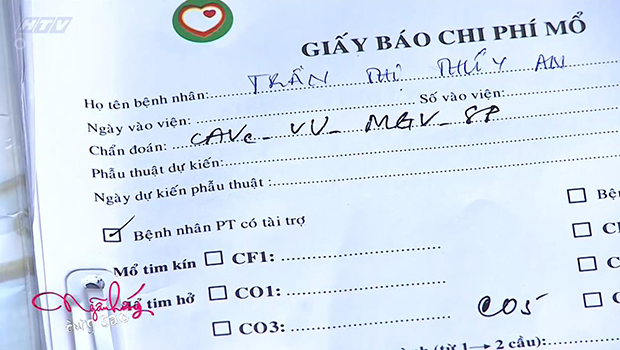 HTV
GIẤY BÁO CHI PHÍ MỔ
Họ tên bệnh nhân: TRẦN THỊ THÚY AN
Ngày vào viện: Số vào viện:
Chẩn đoán: CAVc_ VU_ MGV_ SP
Phẫu thuật dự kiến:
Ngày dự kiến phẫu thuật :
Bệnh nhân PT có tài trợ Bệ
Mổ tim kín CF1: CF
Mổ tim hở CO1: C
CO3: CO5 C
(từ 1→ 2 cầu):
Ngân hàng